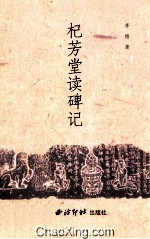 杞芳堂读碑记
李樯 著
西泠印社出版社
ChaoXing.com